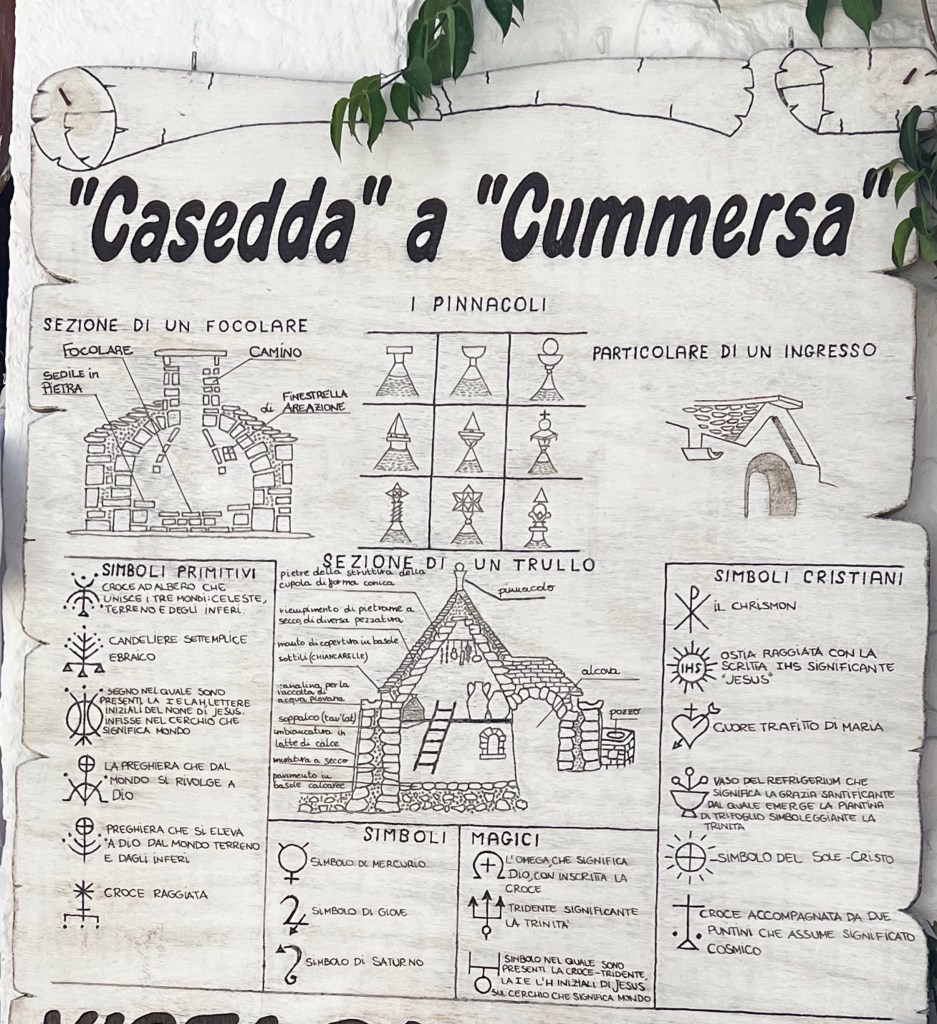 "Casedda" a "Cummersa"
I PINNACOLI
SEZIONE DI UN FOCOLARE
FOCOLARE
CAMINO
SEDILE in
PIETRA
FINESTRELLA
di AREAZIONE
PARTICOLARE DI UN INGRESSO
SIMBOLI PRIMITIVI
CROCE AD ALBERO CHE
UNISCE I TRE MONDI: CELESTE,
TERRENO E DEGLI INFERI
CANDELIERE SETTEMPLICE
EBRAICO
SEGNO NEL QUALE SONO
PRESENTI LA I E LA H, LETTERE
INIZIALI DEL NONE DI JESUS
INFISSE NEL CERCHIO CHE
SIGNIFICA MONDO
LA PREGHIERA CHE DAL
MONDO SI RIVOLGE A
DIO
PREGHIERA CHE SI ELEVA
A DIO DAL MONDO TERRENO
E DAGLI INFERI
CROCE RAGGIATA
SEZIONE DI UN TRULLO
pietre della struttura della
cupola di forma conica
pinnacolo
riempimento di pietrame a
secco, di diversa pezzatura
manto di copertura in basole
sottili (CHIANCARELLE)
canalina per la
raccolta di
acqua piovana
soppalco (tavlat)
imbiancatura in
latte di calce
muratura a secco
pavimento in
basole calcaree
alcova
pozzo
SIMBOLI MAGICI
SIMBOLO DI MERCURIO
SIMBOLO DI GIOVE
SIMBOLO DI SATURNO
L'OMEGA, CHE SIGNIFICA
DIO, CON INSCRITTA LA
CROCE
TRIDENTE SIGNIFICANTE
LA TRINITA'
SIMBOLO NEL QUALE SONO
PRESENTI LA CROCE-TRIDENTE,
LA I E L'H INIZIALI DI JESUS
SUL CERCHIO CHE SIGNIFICA MONDO
SIMBOLI CRISTIANI
IL CHRISMON
IHS
OSTIA RAGGIATA CON LA
SCRITTA IHS SIGNIFICANTE
"JESUS"
CUORE TRAFITTO DI MARIA
VASO DEL REFRIGERIUM CHE
SIGNIFICA LA GRAZIA SANTIFICANTE
DAL QUALE EMERGE LA PIANTINA
DI TRIFOGLIO SIMBOLEGGIANTE LA
TRINITA
SIMBOLO DEL SOLE-CRISTO
CROCE ACCOMPAGNATA DA DUE
PUNTINI CHE ASSUME SIGNIFICATO
COSMICO